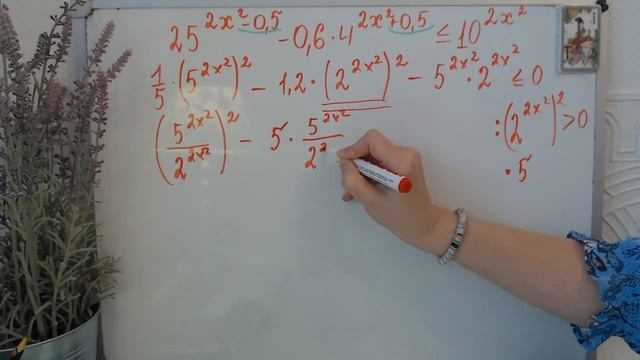 25^(2x²-0,5) - 0,6·4^(2x²+0,5) ≤ 10^(2x²)
1/5·(5^(2x²))² - 1,2·(2^(2x²))² - 5^(2x²)·2^(2x²) ≤ 0
(5^(2x²)/2^(2x²))² - 5·5^(2x²)/2^2 :(2^(2x²))² > 0
·5